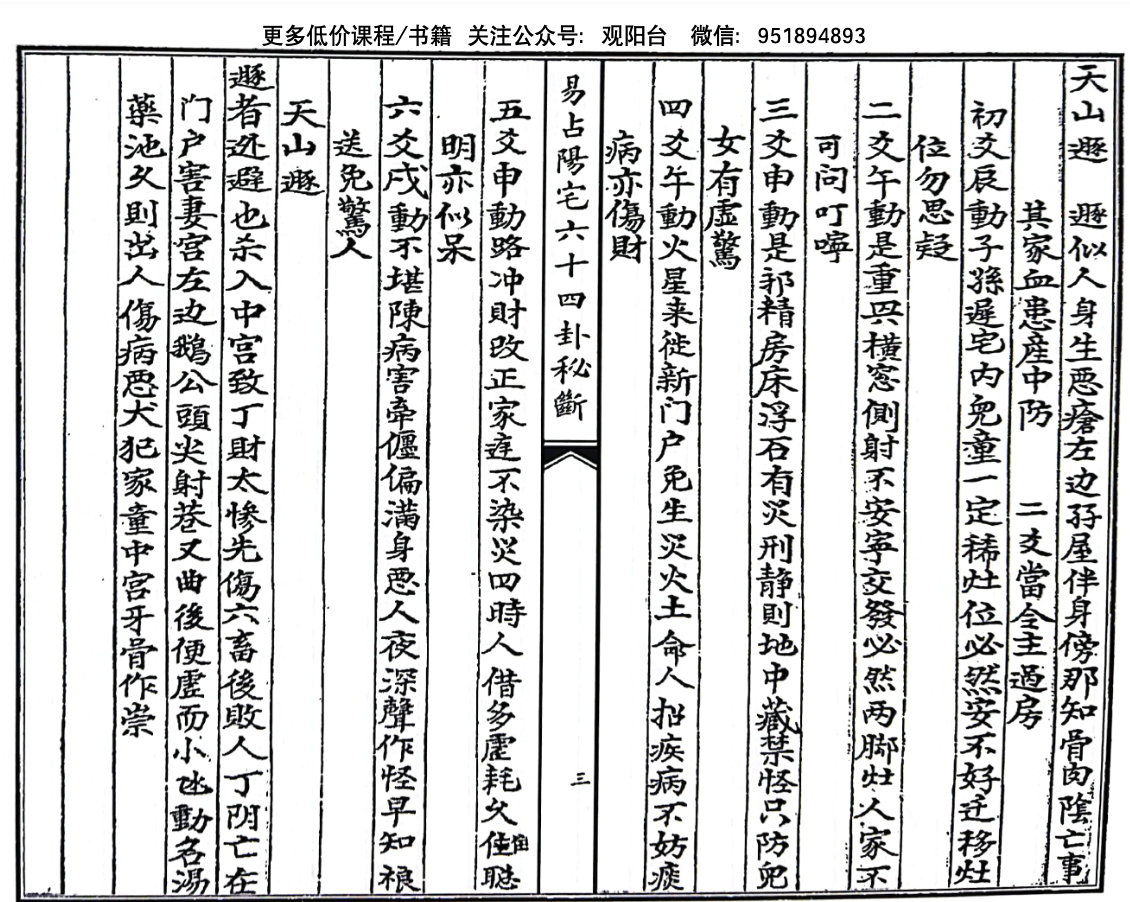 更多低价课程/书籍 关注公众号: 观阳台 微信: 951894893
天山遯 遯似人身生恶瘡左边孖屋伴身傍那知骨肉陰亡事
其家血患産中防 二爻當令主過房
初爻辰動子孫遲宅内児童一定稀灶位必然安不好迁移灶
位勿思疑
二爻午動是重四横窓側射不安寧交發必然两脚灶人家不
可问叮嚀
三爻申動是邪精房床浮石有災刑静則地中藏禁怪只防児
女有虚驚
四爻午動火星来徙新门户免生災火土命人招疾病不妨痰
病亦傷財
易占陽宅六十四卦秘斷
三
五爻申動路冲財改正家庭不染災四時人借多虚耗久住聴
明亦似呆
六爻戌動不堪陳病害牵僵偏滿身恶人夜深聲作怪早知禳
送免驚人
天山遯
遯者迯避也杀入中宫致丁財太惨先傷六畜後敗人丁阴亡在
门户害妻宫左边鵝公頭尖射巷又曲後便虚而小氹動名湯
藥池久則出人傷病恶犬犯家童中宫牙骨作祟